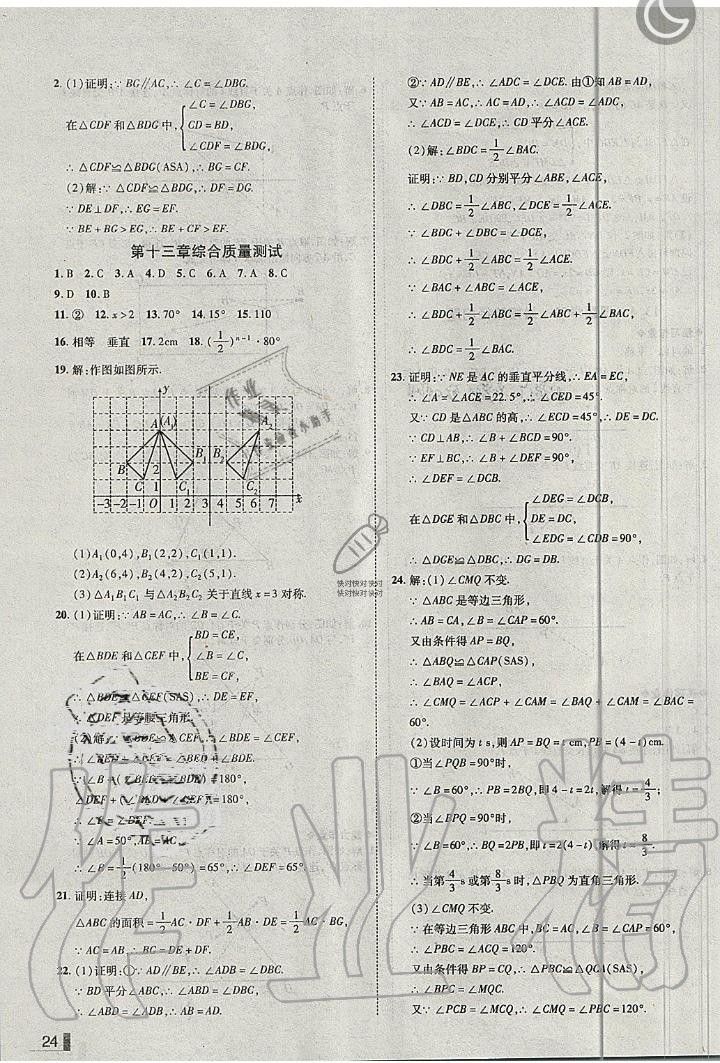 2. (1)证明:∵BG∥AC,∴∠C=∠DBG.
在△CDF和△BDG中,{∠C=∠DBG,
CD=BD,
∠CDF=∠BDG,
∴△CDF≌△BDG(ASA).∴BG=CF.
(2)解:∵△CDF≌△BDG,∴DF=DG.
∵DE⊥DF,∴EG=EF.
∵BE+BG>EG,∴BE+CF>EF.
第十三章综合质量测试
1.B 2.C 3.A 4.D 5.C 6.A 7.A 8.C
9.D 10.B
11.② 12.x>2 13.70° 14.15° 15.110
16.相等 垂直 17.2cm 18.(1/2)ⁿ⁻¹·80°
19.解:作图如图所示.
y
A (A₁) A₂
B 2 B₁ B₂
C 1 C₁ C₂
-3 -2 -1 O 1 2 3 4 5 6 7 x
(1)A₁(0,4),B₁(2,2),C₁(1,1).
(2)A₂(6,4),B₂(4,2),C₂(5,1).
(3)△A₁B₁C₁与△A₂B₂C₂关于直线x=3对称.
20.(1)证明:∵AB=AC,∴∠B=∠C.
在△BDE和△CEF中,{BD=CE,
∠B=∠C,
BE=CF,
∴△BDE≌△CEF(SAS).∴DE=EF,
∴△DEF是等腰三角形.
(2)解:∵∠DEC=∠B+∠BDE,
∴∠BED+∠B+∠BDE=180°,
∠DEF+∠BED+∠CEF=180°,
∴∠B=∠DEF.
∵∠A=50°,AB=AC,
∴∠B=1/2(180°-50°)=65°.∴∠DEF=65°.
21.证明:连接AD,
△ABC的面积=1/2AC·DF+1/2AB·DE=1/2AC·BG,
∵AC=AB,∴DE+DF=BG.
22.(1)证明:①∵AD∥BE,∴∠ADB=∠DBC.
∵BD平分∠ABC,∴∠ABD=∠DBC,
∴∠ABD=∠ADB,∴AB=AD.
②∵AD∥BE,∴∠ADC=∠DCE.由①知AB=AD,
又∵AB=AC,∴AC=AD,∴∠ACD=∠ADC,
∴∠ACD=∠DCE,∴CD平分∠ACE.
(2)解:∠BDC=1/2∠BAC.
证明:∵BD,CD分别平分∠ABE,∠ACE,
∴∠DBC=1/2∠ABC,∠DCE=1/2∠ACE.
∵∠BDC+∠DBC=∠DCE,
∴∠BDC+1/2∠ABC=1/2∠ACE,
∵∠BAC+∠ABC=∠ACE,
∴∠BDC+1/2∠ABC=1/2∠ABC+1/2∠BAC,
∴∠BDC=1/2∠BAC.
23.证明:∵NE是AC的垂直平分线,∴EA=EC,
∴∠A=∠ACE=22.5°,∴∠CED=45°,
又∵CD是△ABC的高,∴∠ECD=45°,∴DE=DC.
∵CD⊥AB,∴∠B+∠BCD=90°.
∵EF⊥BC,∴∠B+∠BEF=90°,
∴∠DEF=∠DCB.
在△DGE和△DBC中,{∠DEG=∠DCB,
DE=DC,
∠EDG=∠CDB=90°,
∴△DGE≌△DBC.∴DG=DB.
24.解:(1)∠CMQ不变.
∵△ABC是等边三角形,
∴AB=CA,∠B=∠CAP=60°.
又由条件得AP=BQ,
∴△ABQ≌△CAP(SAS),
∴∠BAQ=∠ACP,
∴∠CMQ=∠ACP+∠CAM=∠BAQ+∠CAM=∠BAC=
60°.
(2)设时间为t s,则AP=BQ=t cm,PB=(4-t)cm.
①当∠PQB=90°时,
∵∠B=60°,∴PB=2BQ,即4-t=2t,解得t=4/3;
②当∠BPQ=90°时,
∵∠B=60°,∴BQ=2PB,即t=2(4-t),解得t=8/3.
∴当第4/3s或第8/3s时,△PBQ为直角三角形.
(3)∠CMQ不变.
∵在等边三角形ABC中,BC=AC,∠B=∠CAP=60°,
∴∠PBC=∠ACQ=120°.
又由条件得BP=CQ,∴△PBC≌△QCA(SAS),
∴∠BPC=∠MQC.
又∵∠PCB=∠MCQ,∴∠CMQ=∠PBC=120°.
快对快对快对
快对快对快对
作业精
24